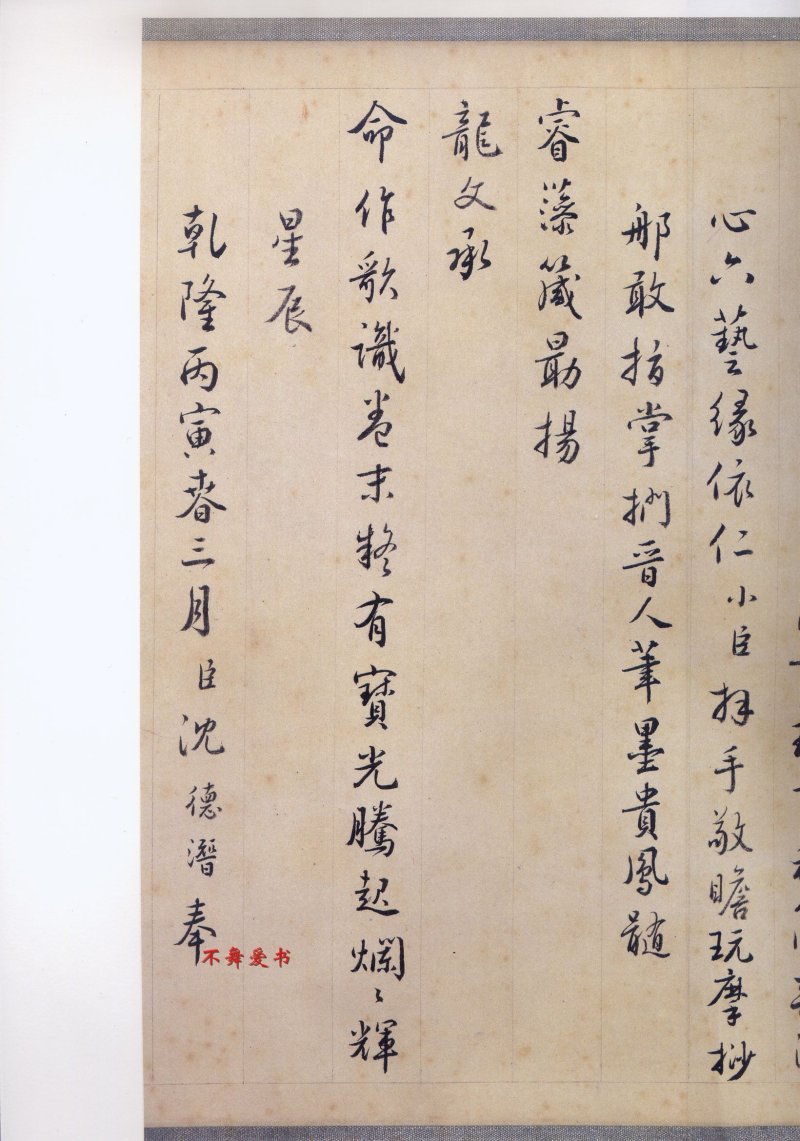 心六藝緣依仁小臣拜手敬瞻玩摩挱
那敢指掌捫晉人筆墨貴鳳髓
睿藻箴勗揚
龍文承
命作歌識卷末疑有寶光騰起爛〻輝
星辰
乾隆丙寅春三月臣沈德潛奉
不舞爱书